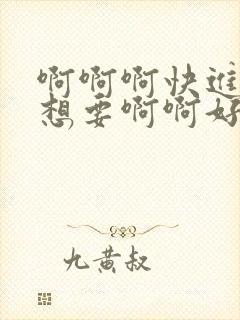 啊啊啊快进
想要啊啊好
九黄叔